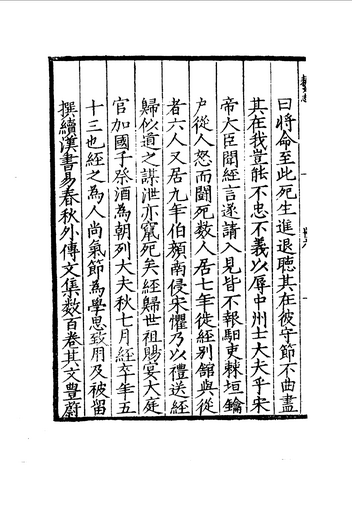 曰將命至此死生進退聽其在彼守節不曲盡
其在我豈能不忠不義以辱中州士大夫乎宋
帝大臣聞經言遂請入見皆不報驛吏棘垣鑰
戶從人怒而鬬死數人居七年徙經別館與從
者六人又居九年伯顏南侵宋懼乃以禮送經
歸似道之謀泄亦竄死矣經歸世祖賜宴大庭
官加國子祭酒為朝列大夫秋七月經卒年五
十三也經之為人尚氣節為學思致用及被留
撰續漢書易春秋外傳文集數百卷其文豐蔚